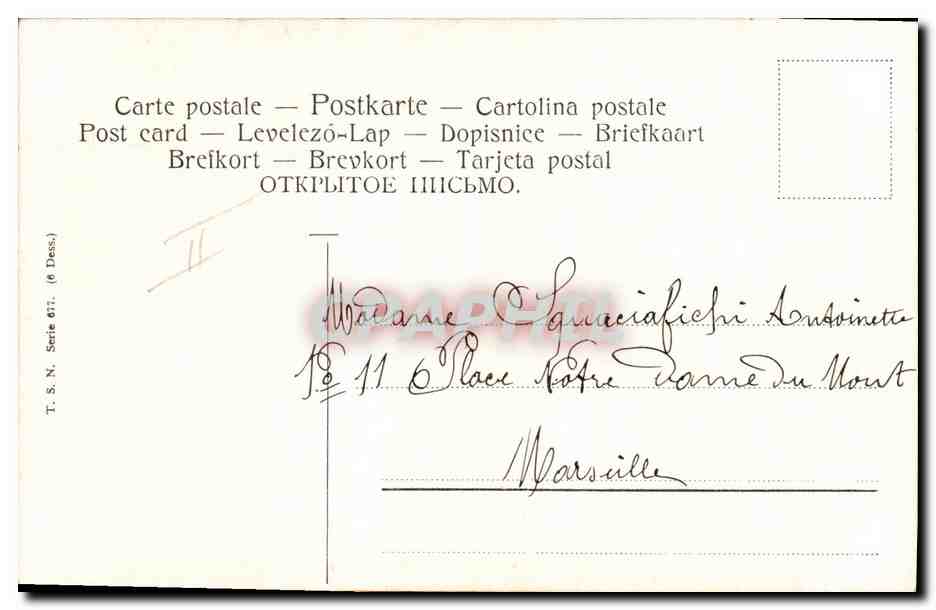 Carte postale — Postkarte — Cartolina postale
Post card — Levelező-Lap — Dopisnice — Briefkaart
Brefkort — Brevkort — Tarjeta postal
ОТКРЫТОЕ ПИСЬМО.
II
T. S. N. Serie 677. (6 Dess.)
CPAPHIL
Madame Sguaciafichi Antoinette
No 11 Place Notre Dame du Mont
Marseille